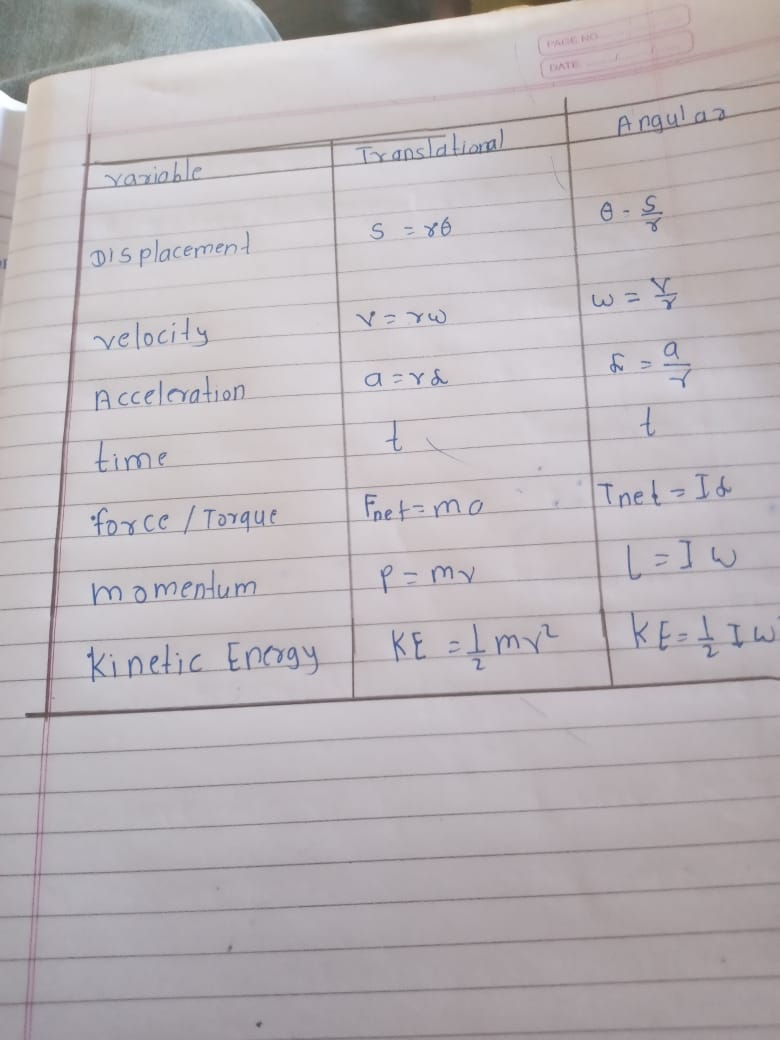 PAGE NO
DATE / /
Variable Translational Angular
Displacement S = rθ θ = S/r
velocity v = rω ω = v/r
Acceleration a = rα α = a/r
time t t
force / Torque Fnet = ma Tnet = Iα
momentum P = mv L = Iω
Kinetic Energy KE = 1/2 mv² KE = 1/2 Iω